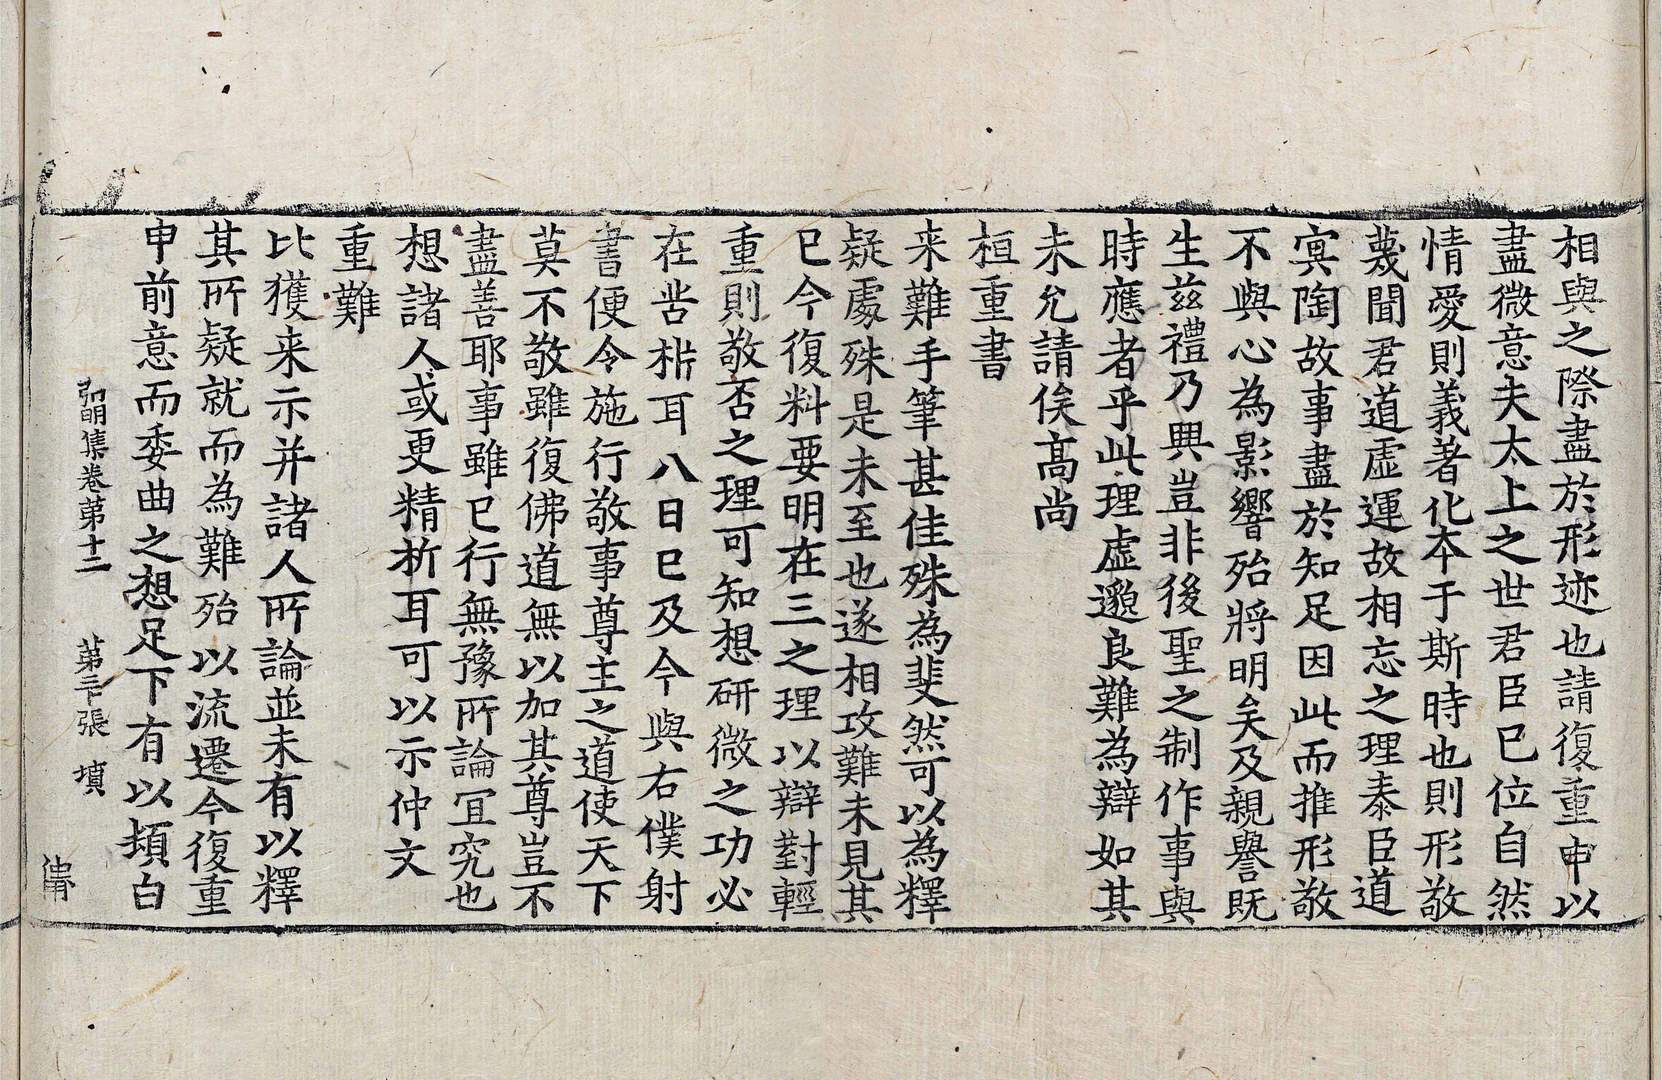 相與之際盡於形迹也請復重申以
盡微意夫太上之世君臣已位自然
情愛則義著化夲于斯時也則形敬
蔑聞君道虛運故相忘之理泰臣道
㝠陶故事盡於知足因此而推形敬
不與心為影響殆將明矣及親譽既
生兹禮乃興豈非後聖之制作事與
時應者乎此理虛邈良難為辯如其
未允請俟高尚
桓重書
来難手筆甚佳殊為斐然可以為釋
疑處殊是未至也遂相攻難未見其
已今復料要明在三之理以辯對輕
重則敬否之理可知想研微之功必
在耳八日已及今與右僕射
書便令施行敬事尊主之道使天下
莫不敬雖復佛道無以加其尊豈不
盡善耶事雖已行無豫所論冝究也
想諸人或更精析耳可以示仲文
重難
比獲来示并諸人所論並未有以釋
其所疑就而為難殆以流遷今復重
申前意而委曲之想足下有以頓白
弘明集卷第十二 第三十張 墳